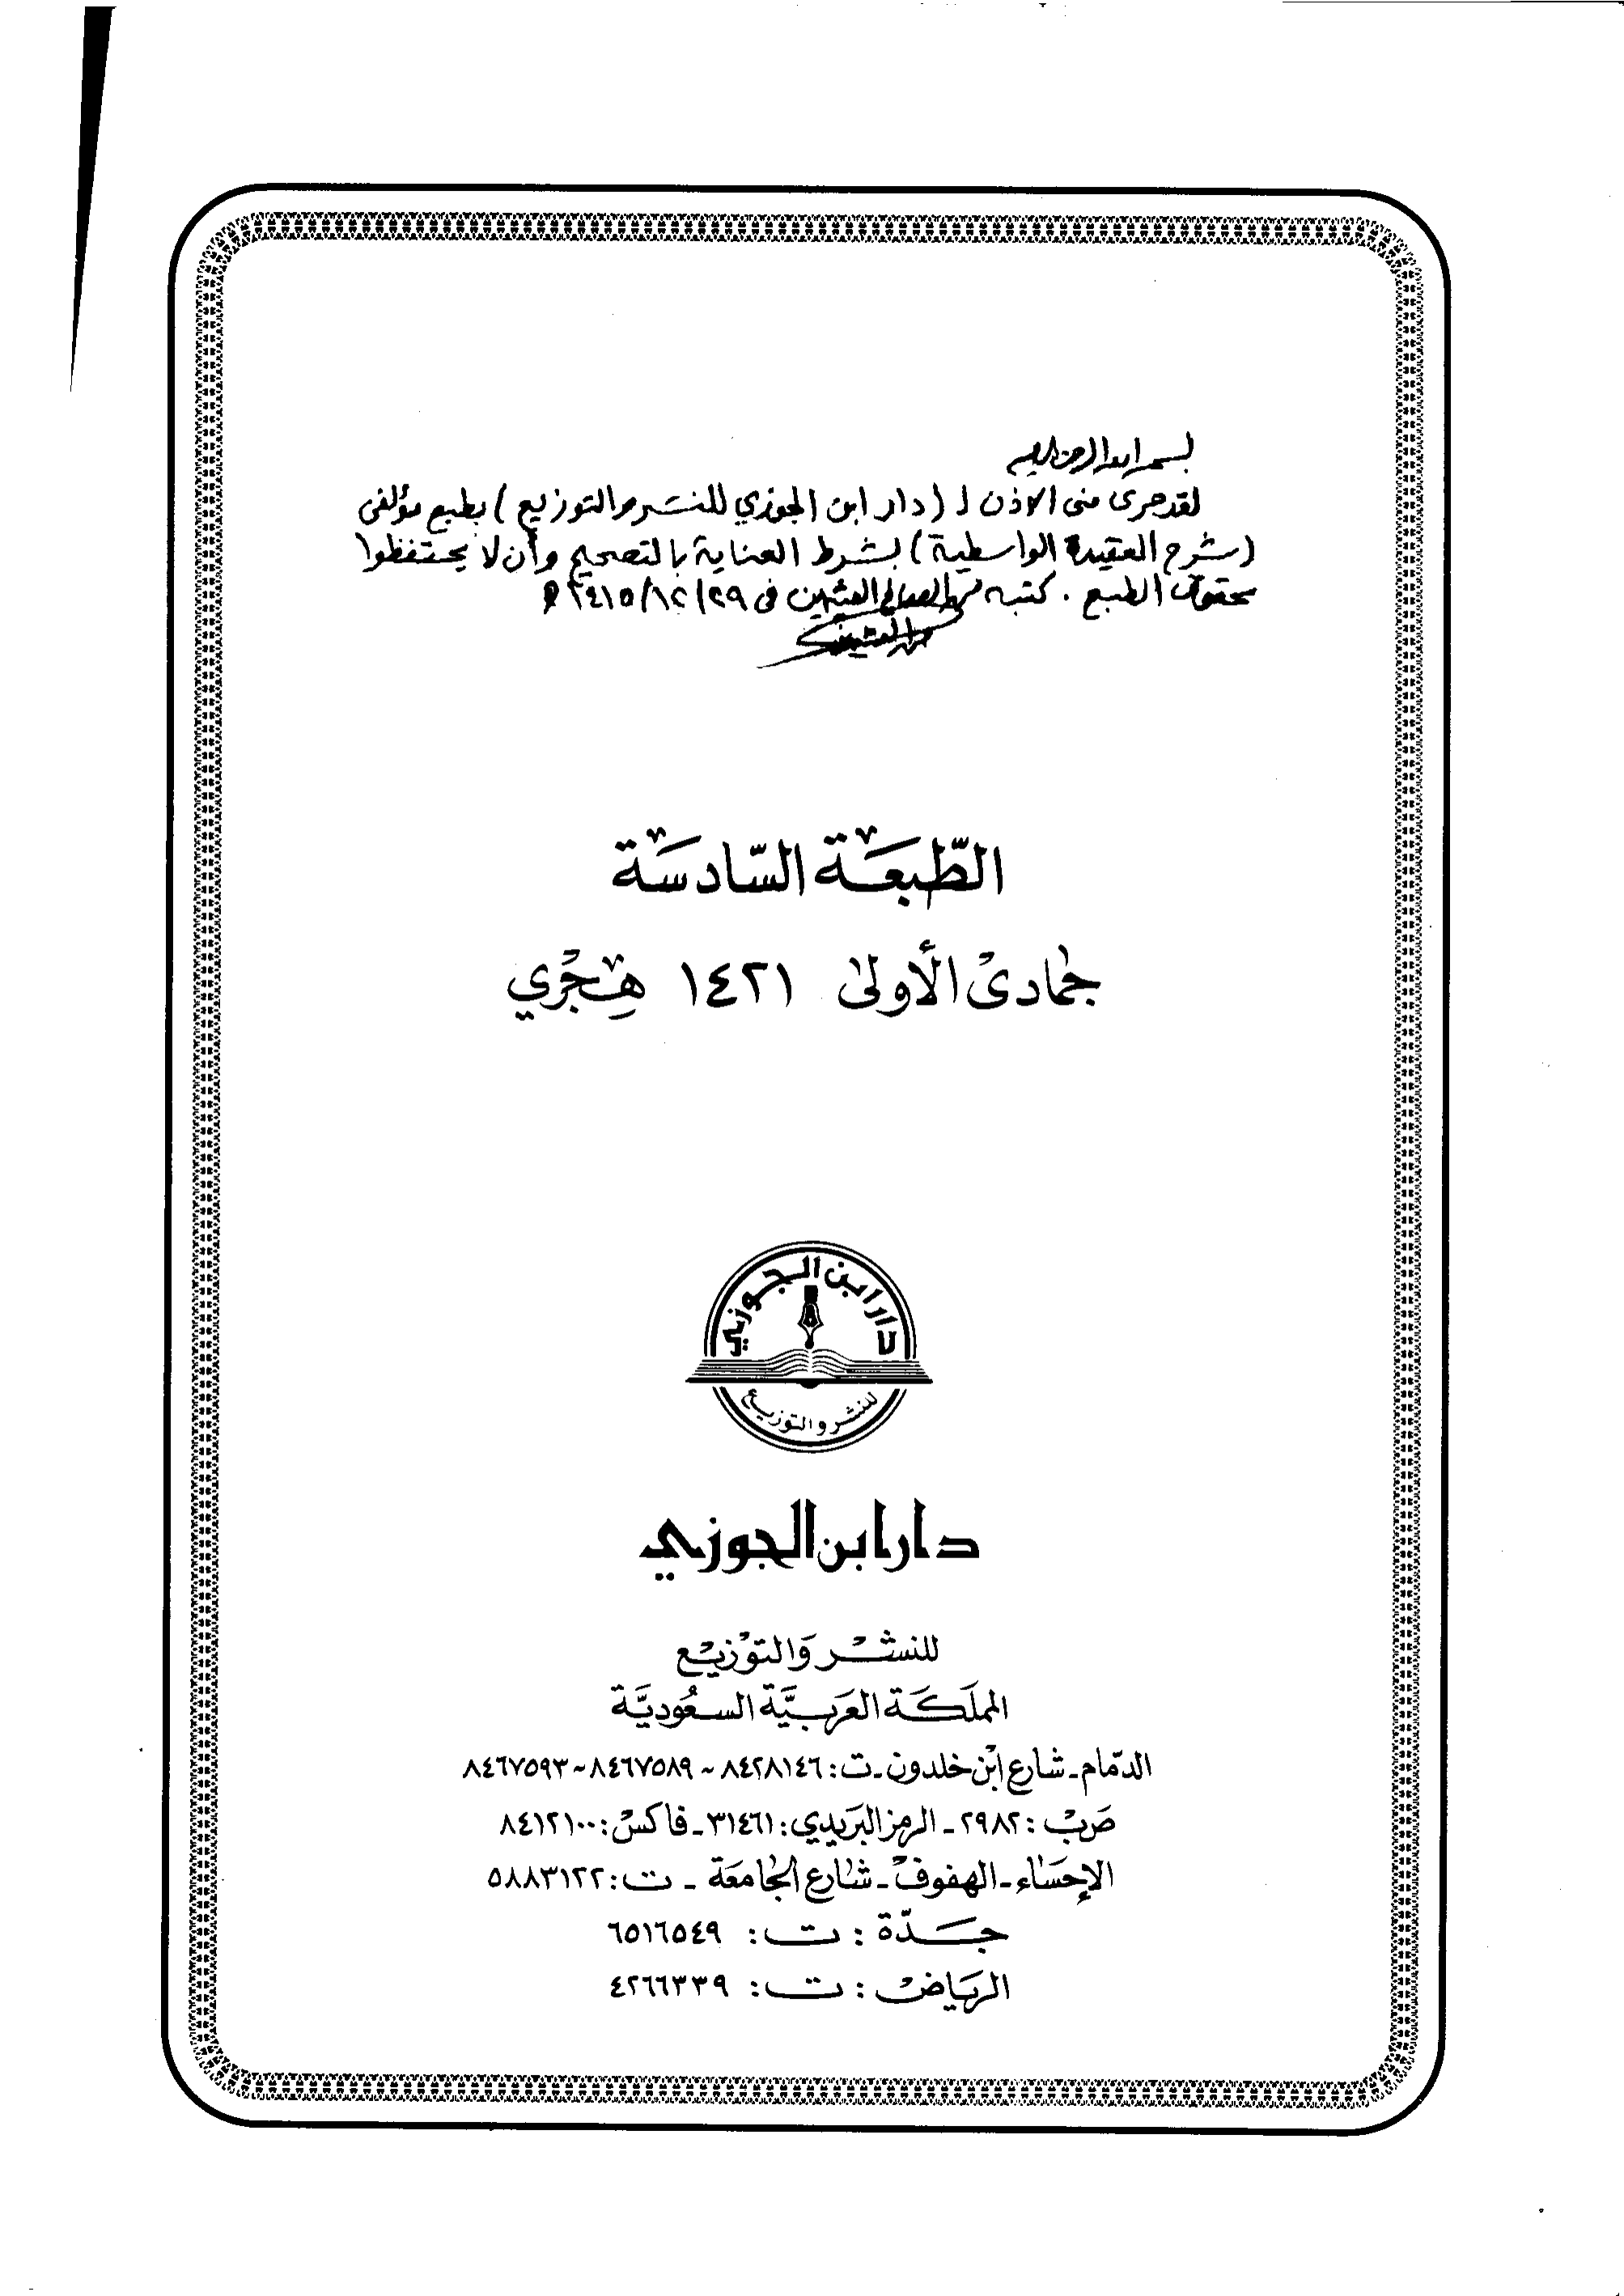 بسم الله الرحمن الرحيم
لقد جرى منى الاذن لـ (دار ابن الجوزي للنشر والتوزيع) بطبع مؤلفى
(شرح العقيدة الواسطية) بشرط العناية بالتصحيح وأن لا يحتفظوا
بحقوق الطبع . كتبه محمد الصالح العثيمين فى ٢٩/١٢/١٤١٥ هـ
الطّبعَة السّادسَة
جمادى الأولى ١٤٢١ هِجْري
دار ابن الجوزي
للنشر والتوزيع
دار ابن الجوزي
للنشْر وَالتوْزيْع
المملَكَة العَربيَّة السعُوديَّة
الدمّام ـ شارع ابْن خلدون ـ ت: ٨٤٢٨١٤٦ ~ ٨٤٦٧٥٨٩ ~ ٨٤٦٧٥٩٣
صَ بْ: ٢٩٨٢ ـ الرمز البَريدي: ٣١٤٦١ ـ فاكسْ: ٨٤١٢١٠٠
الإحسَاء ـ الهفوفْ ـ شارع الجَامعَة ـ ت: ٥٨٨٣١٢٢
جَدّة : ت: ٦٥١٦٥٤٩
الريَاضْ : ت: ٤٢٦٦٣٣٩